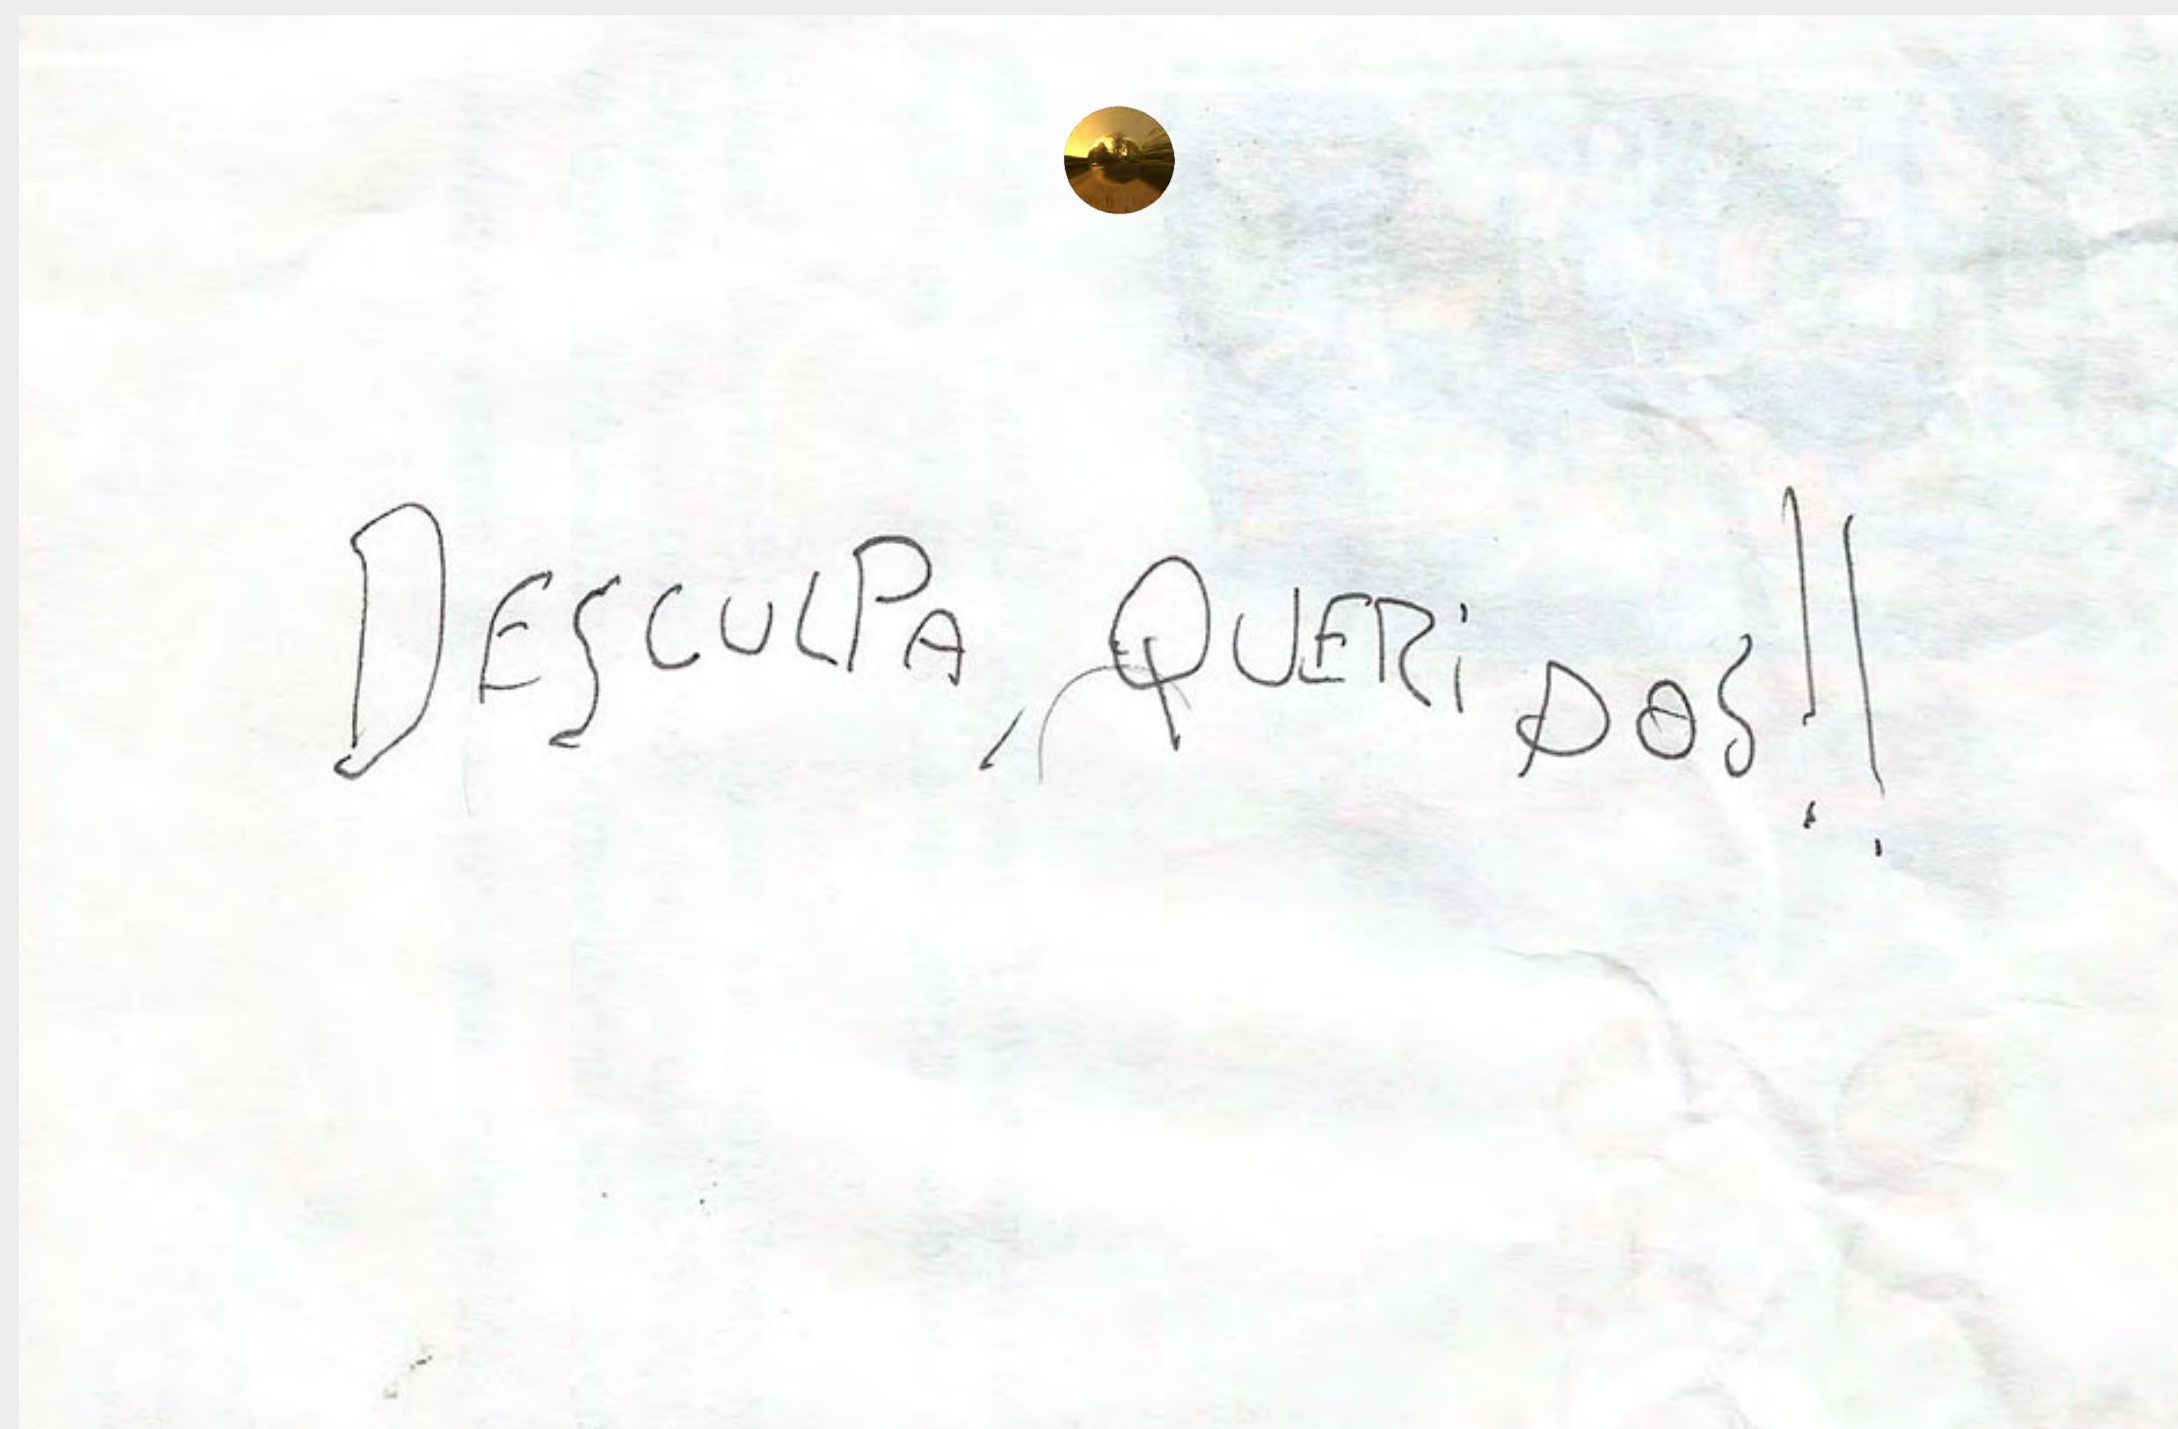 DESCULPA, QUERiDOS!!